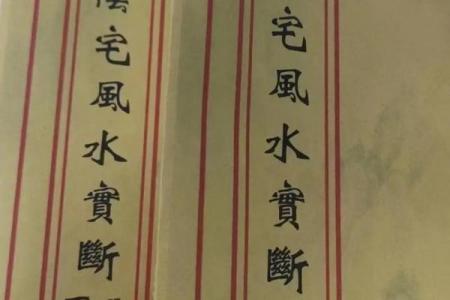 宅風水實斷
陰宅風水實斷